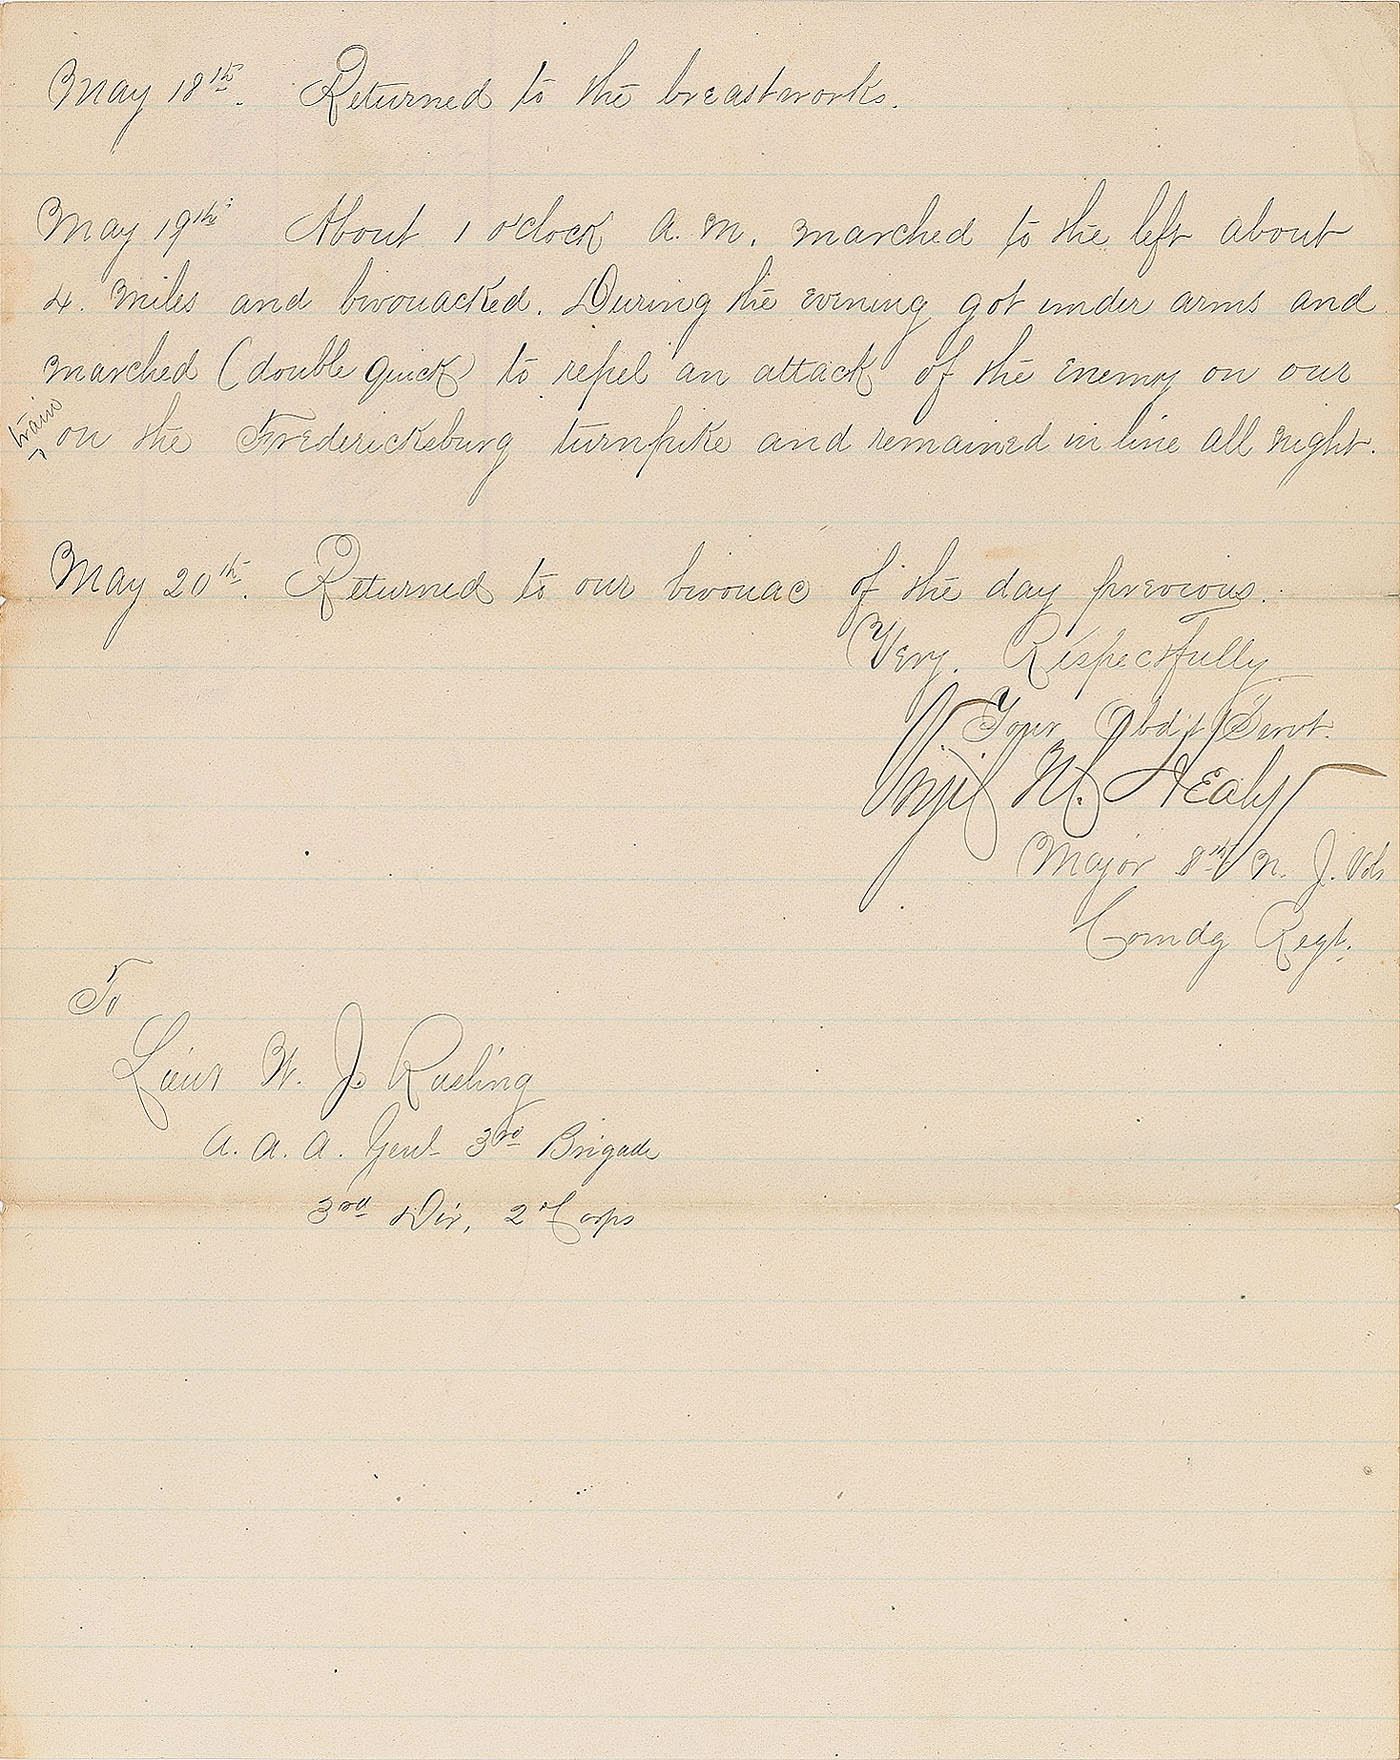 May 18th. Returned to the breastworks.
May 19th. About 1 o'clock A. M. marched to the left about
4. miles and bivouacked. During the evening got under arms and
marched (double quick) to repel an attack of the enemy on our
train
on the Fredericksburg turnpike and remained in line all night.
May 20th. Returned to our bivouac of the day previous.
Very. Respectfully
Your Obdt Servt.
Virgil M. Healy
Major 8th N. J. Vols
Comdg Regt.
To
Lieut W. J. Rusling
A. A. A. Genl 3rd Brigade
3rd Div, 2d Corps